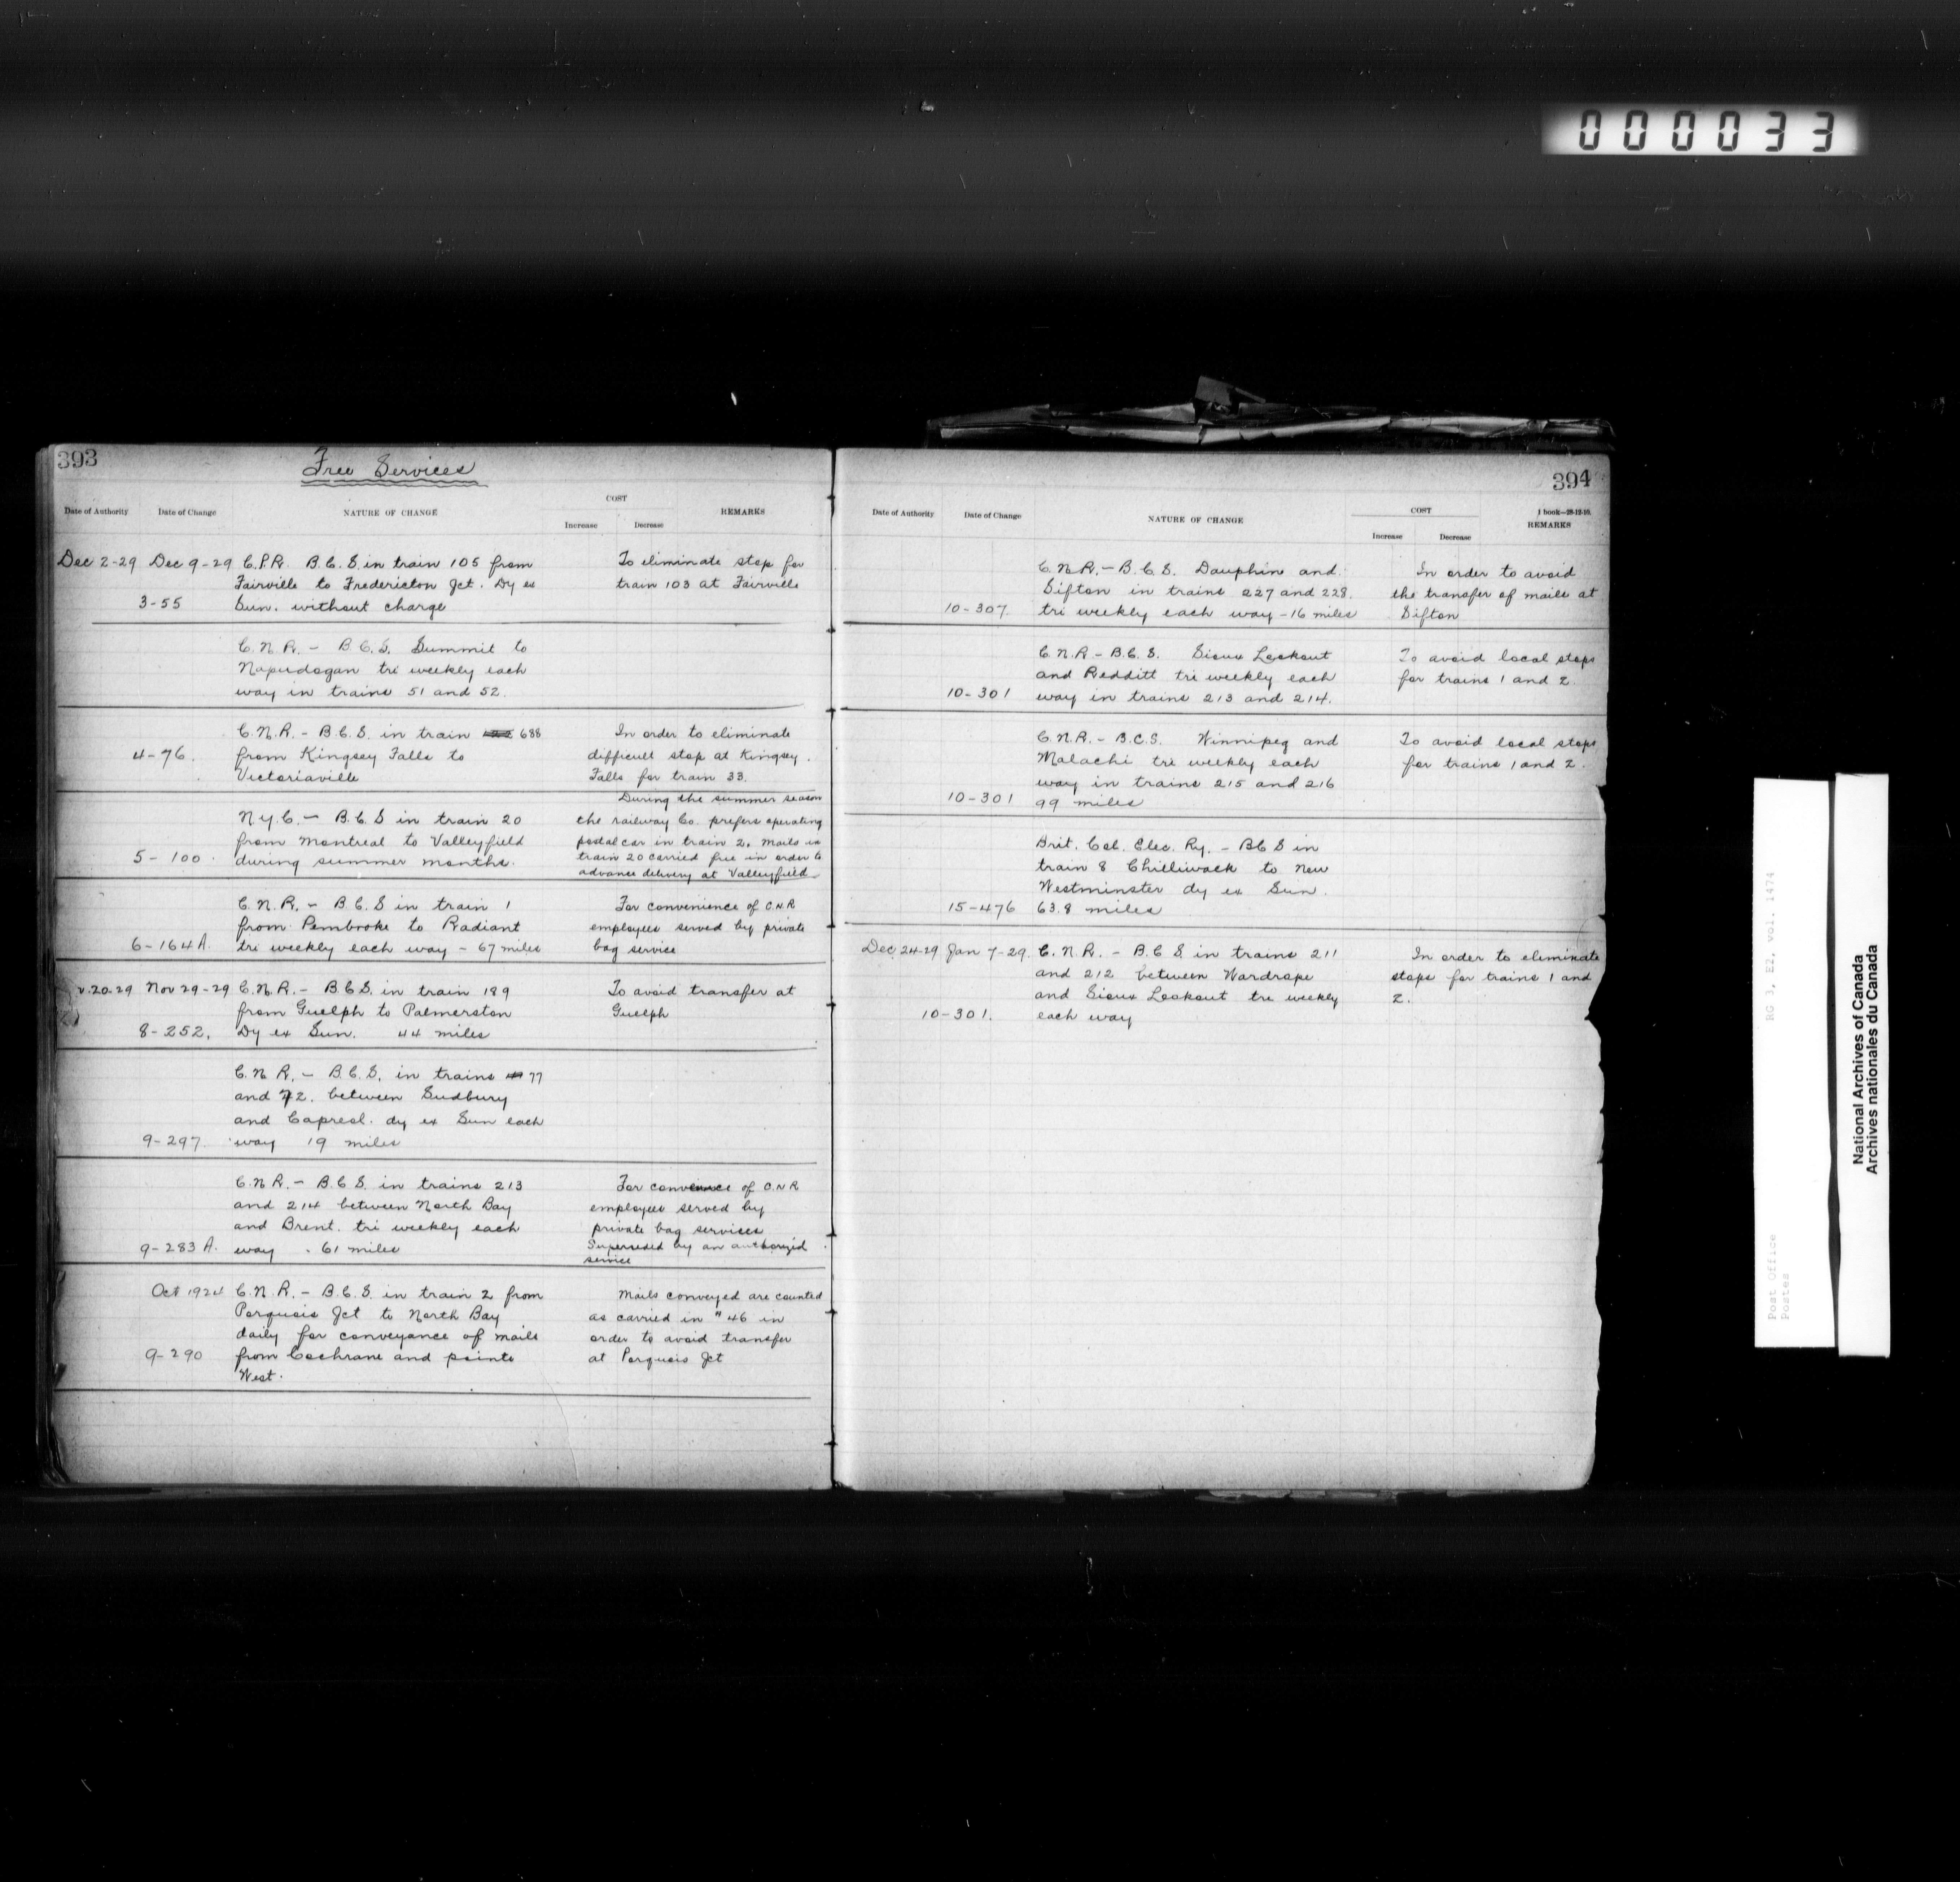 000033
393
Free Services
Date of Authority Date of Change NATURE OF CHANGE COST Increase Decrease REMARKS
Dec 2-29 Dec 9-29 C.P.R. B.C.S. in train 105 from To eliminate stop for
Fairville to Fredericton Jct. Dy ex train 103 at Fairville
3-55 Sun. without charge
C.N.R. - B.C.S. Summit to
Napudogan tri weekly each
way in trains 51 and 52.
C.N.R. - B.C.S. in train 688 In order to eliminate
4-76. from Kingsey Falls to difficult stop at Kingsey
Victoriaville Falls for train 33.
During the summer season
N.Y.C. - B.C.S in train 20 the railway Co. prefers operating
from Montreal to Valleyfield postal car in train 2. Mails in
5-100. during summer months. train 20 carried free in order to
advance delivery at Valleyfield
C.N.R. - B.C.S in train 1 For convenience of C.N.R
from Pembroke to Radiant employees served by private
6-164A. tri weekly each way - 67 miles bag service
v.20-29 Nov 29-29 C.N.R. - B.C.S. in train 189 To avoid transfer at
from Guelph to Palmerston Guelph
8-252. Dy ex Sun. 44 miles
C.N.R. - B.C.S. in trains 77
and 72. between Sudbury
and Capreol. dy ex Sun each
9-297. way 19 miles
C.N.R. - B.C.S. in trains 213 For convenience of C.N.R
and 214 between North Bay employees served by
and Brent. tri weekly each private bag services
9-283 A. way . 61 miles Superseded by an authorized
service
Oct 1924 C.N.R. - B.C.S. in train 2 from Mails conveyed are counted
Porquois Jct to North Bay as carried in " 46 in
daily for conveyance of mails order to avoid transfer
9-290 from Cochrane and points at Porquois Jct
West.
394
1 book-28-12-10.
Date of Authority Date of Change NATURE OF CHANGE COST Increase Decrease REMARKS
C.N.R. - B.C.S. Dauphin and In order to avoid
Sifton in trains 227 and 228. the transfer of mails at
10-307. tri weekly each way - 16 miles Sifton
C.N.R - B.C.S. Sioux Lookout To avoid local stops
and Redditt tri weekly each for trains 1 and 2
10-301 way in trains 213 and 214.
C.N.R. - B.C.S. Winnipeg and To avoid local stops
Malachi tri weekly each for trains 1 and 2.
way in trains 215 and 216
10-301 99 miles
Brit. Col. Elec. Ry. - BCS in
train 8 Chilliwack to New
Westminster dy ex Sun.
15-476 63.8 miles
Dec 24-29 Jan 7-29. C.N.R. - B.C.S. in trains 211 In order to eliminate
and 212 between Wardrope stops for trains 1 and
and Sioux Lookout tri weekly 2.
10-301. each way
Post Office RG 3, E2, vol. 1474
Postes
National Archives of Canada
Archives nationales du Canada